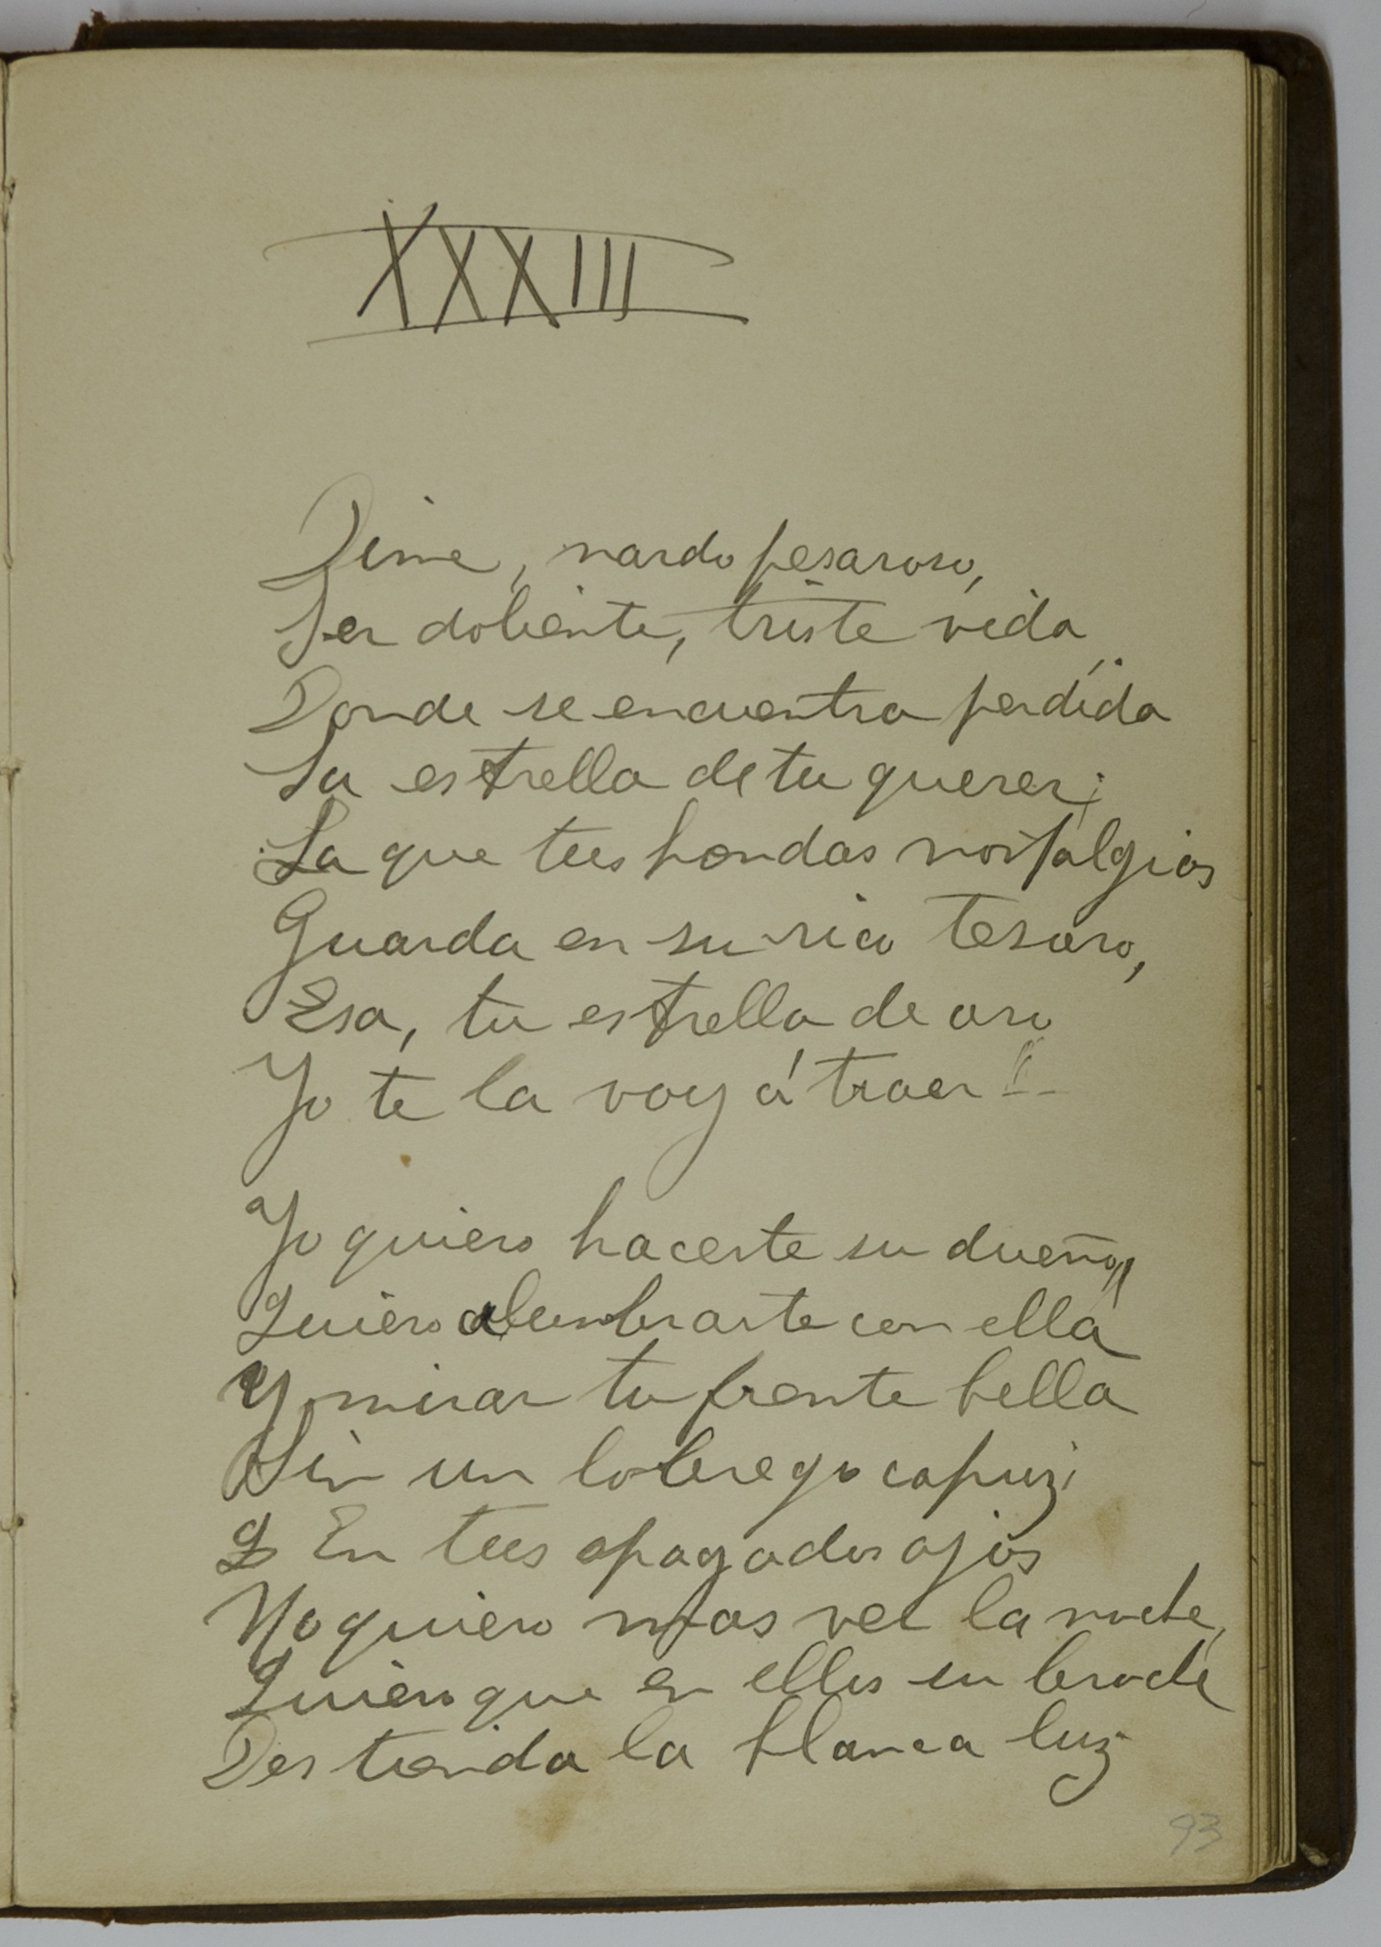 XXXIII
Dime, nardo pesaroso,
Ser doliente, triste vida,
Donde se encuentra perdida
La estrella de tu querer;
La que tus hondas nostalgias
Guarda en su rico tesoro,
Esa, tu estrella de oro
Yo te la voy á traer!..
Yo quiero hacerte su dueño,
Quiero alumbrarte con ella
Y mirar tu frente bella
Sin un lobrego capuz;
En tus apagados ojos
No quiero mas ver la noche,
Quiero que en ellos su broche
Destienda la blanca luz
93